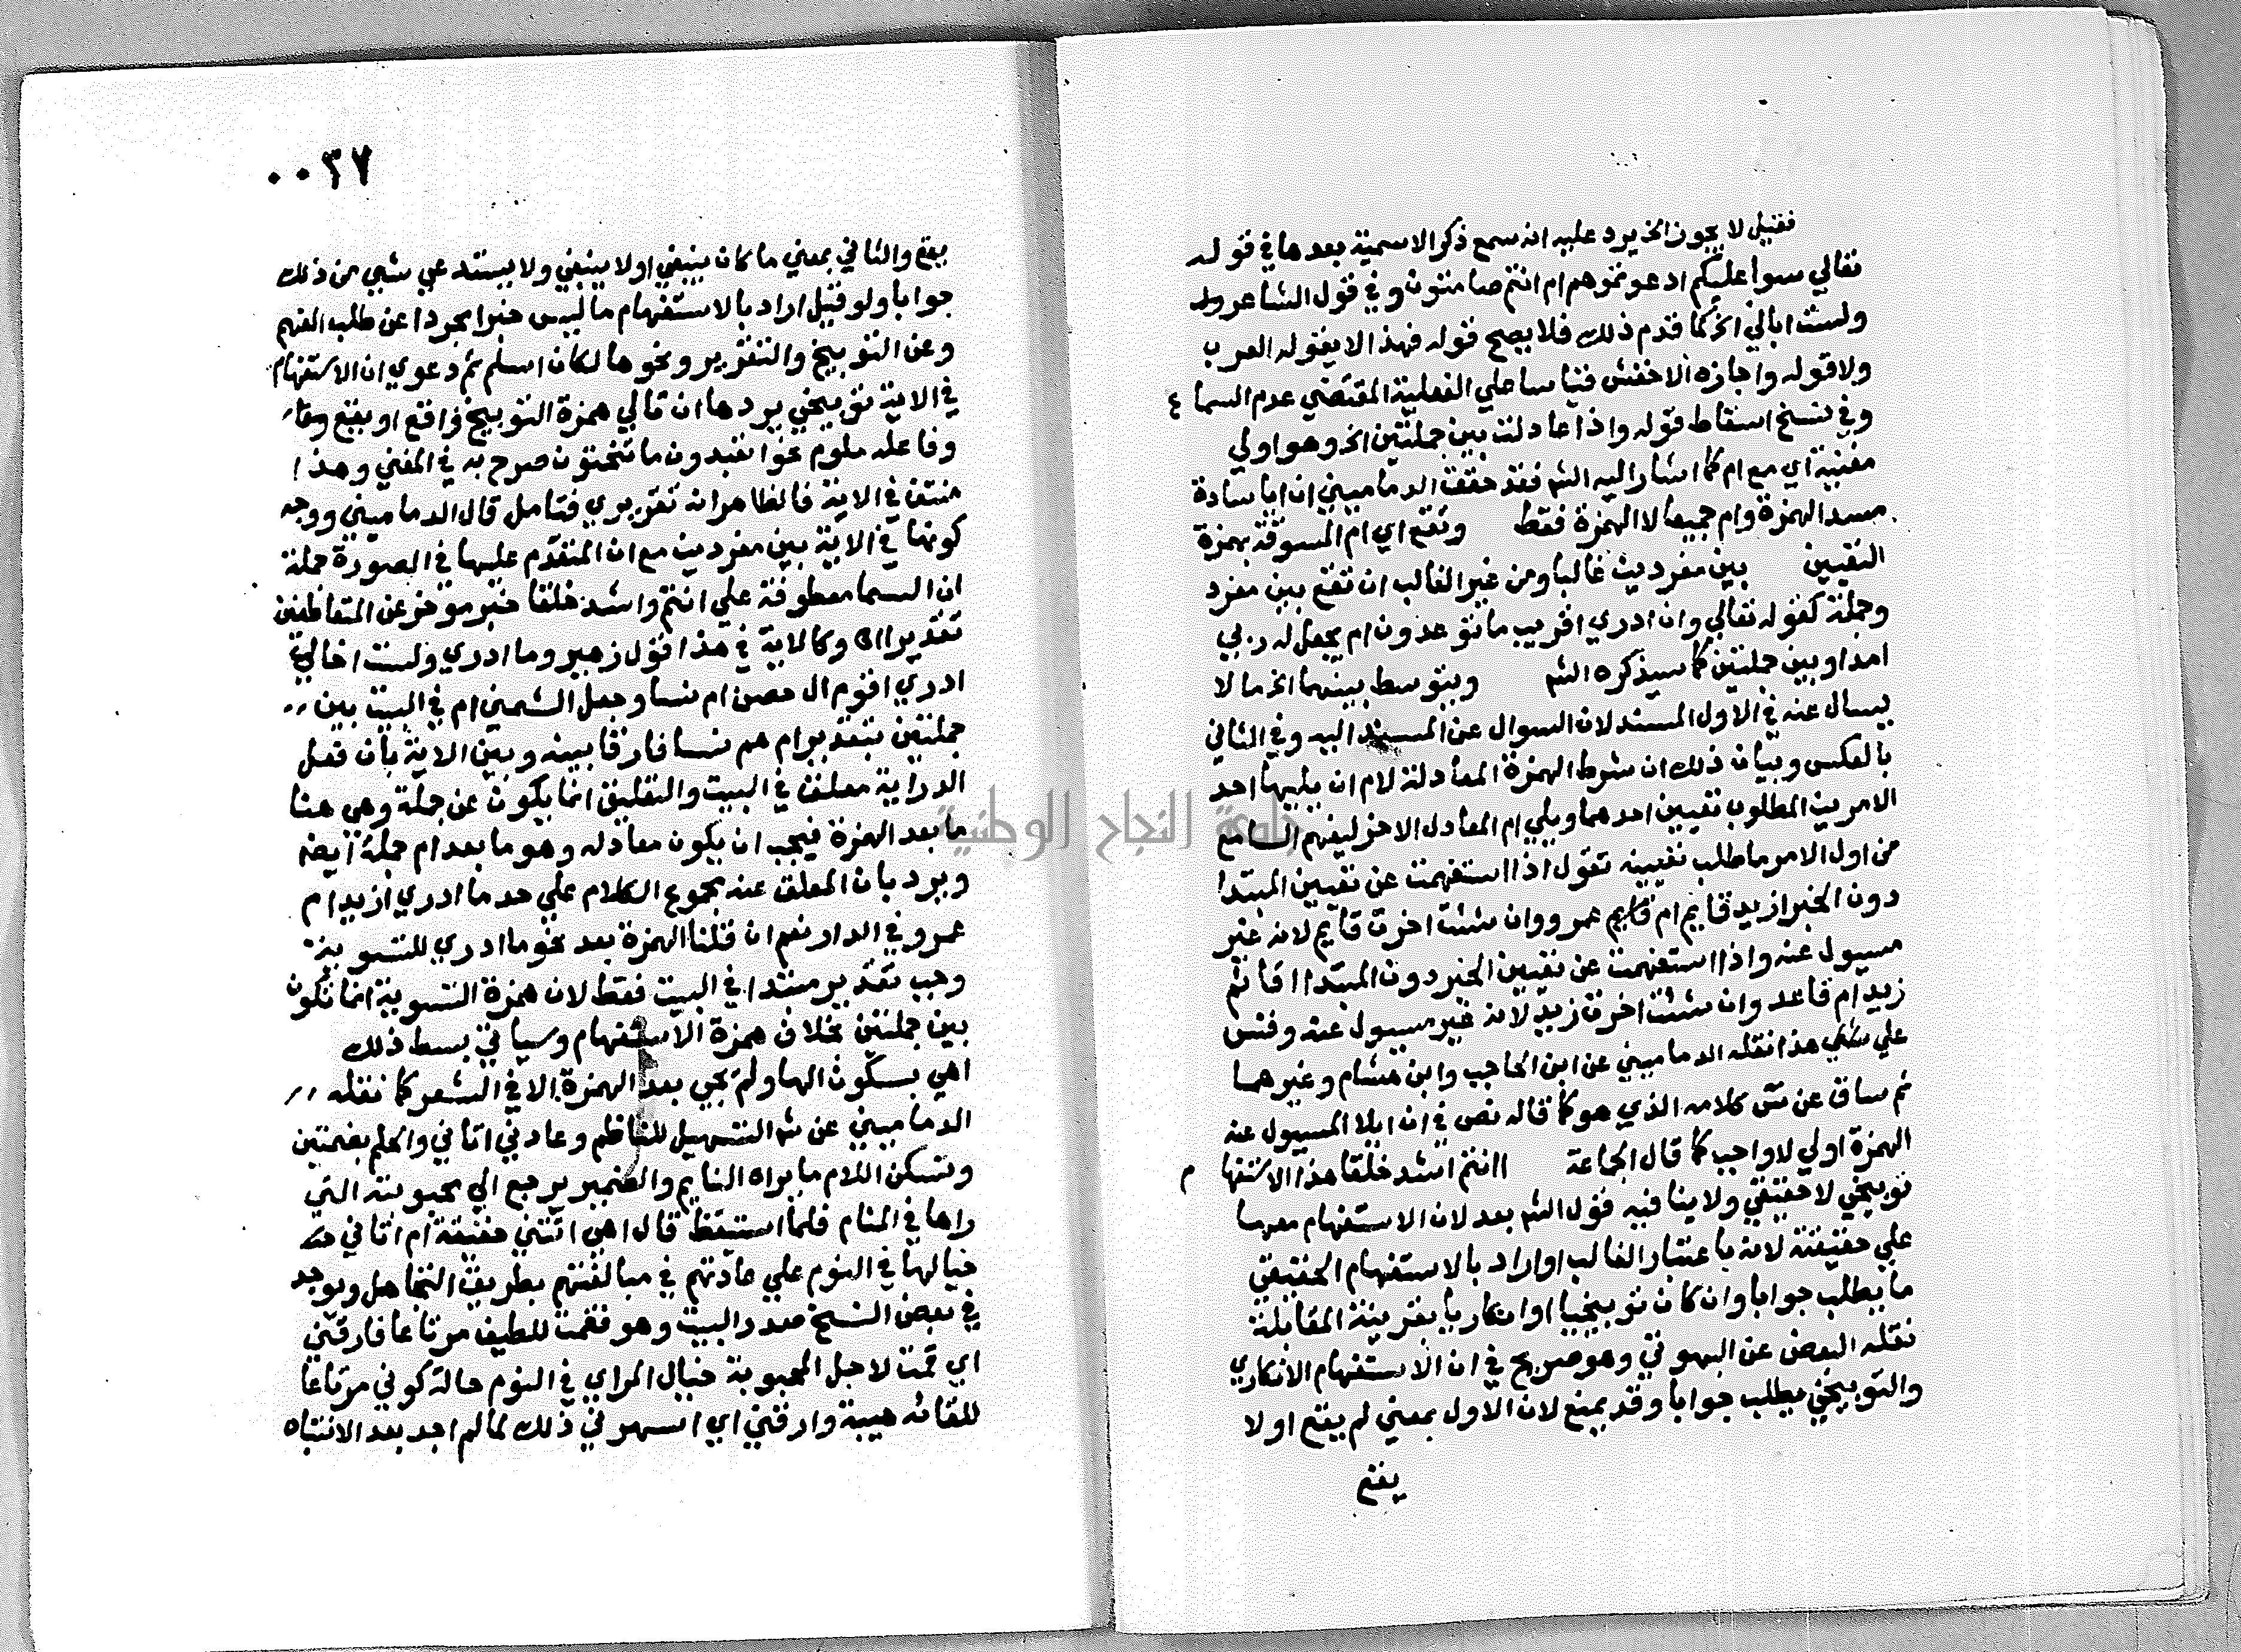 فقيل لا يجوز الخ يرد عليه انه سمع ذكر الاسمية بعدها في قوله
تعالي سوا عليكم ادعوتموهم ام انتم صامتون وفي قول الشاعر
ولست ابالي الخ كما قدم ذلك فلا يصح قوله فهذا الا يقوله العرب
ولا قوله واجازه الاخفش قياسا علي الفعلية المقتضي عدم السماع
وفي نسخ اسقاط قوله واذا عادلت بين جملتين الخ وهو اولي
مغنية اي مع ام كما اشار اليه الشم فقد حقق الدماميني ان ايا سادة
مسد الهمزة وام جميعا لا الهمزة فقط وتقع اي ام المسبوقة بهمزة
التعيين بين مفردين غالبا ومن غير الغالب ان تقع بين مفرد
وجملة كقوله تعالي وان ادري اقريب ما توعدون ام يجعل له ربي
امدا وبين جملتين كما سيذكره الشم ويتوسط بينهما الخ ما لا
يسال عنه في الاول المسند لان السوال عن المسند اليه وفي الثاني
بالعكس وبيان ذلك ان شرط الهمزة المعادلة لام ان يليها احد
الامرين المطلوب تعيين احدهما ويلي ام المعادل الاخر ليفهم السامع
من اول الامر ما طلب تعيينه تقول اذا استفهمت عن تعيين المبتدا
دون الخبر ازيد قايم ام قايم عمرو وان شئت اخرت قايم لانه غير
مسيول عنه واذا استفهمت عن تعيين الخبر دون المبتدا اقائم
زيد ام قاعد وان شئت اخرت زيد لانه غير مسيول عنه وقس
علي هذا نقله الدماميني عن ابن الحاجب وابن هشام وغيرهما
ثم ساق عن كلامه الذي هو كما قاله نص في ان ايلا المسيول عنه
الهمزة اولي لا واجب كما قال الجماعة اانتم اشد خلقا هذا الاستفهام
توبيخي لا حقيقي ولا ينافيه قول الشم بعد لان الاستفهام معها
علي حقيقته لانه باعتبار الغالب او اراد بالاستفهام الحقيقي
ما يطلب جوابا وان كان توبيخيا او انكاريا بقرينة المقابلة
نقله البعض عن البهوتي وهو صريح في ان الاستفهام الانكاري
والتوبيخي يطلب جوابا وقد يمنع لان الاول بمعني لم يقع او لا
يقع
٠٠٣٧
يقع والثاني بمعني ما كان ينبغي او لا ينبغي ولا يستدعي شي من ذلك
جوابا ولو قيل اراد بالاستفهام ما ليس خبرا مجردا عن طلب الفهم
وعن التوبيخ والتقرير ونحوها لكان اسلم ثم دعوي ان الاستفهام
في الاية توبيخي يردها ان تالي همزة التوبيخ واقع او يقع
وفاعله ملوم نحو اتعبدون ما تنحتون صرح به في المغني وهذا
منتف في الاية فالظاهر انه تقريري فتامل قال الدماميني ووجه
كونها في الاية بين مفردين مع ان المتقدم عليها في الصورة جملة
ان السما معطوفة علي انتم واشد خلقا خبر موخر عن المتعاطفين
تقديرا اه وكالاية في هذا قول زهير وما ادري ولست اخال
ادري اقوم ال حصن ام نسا وجعل الشمني ام في البيت بين
جملتين بتقدير ام هم نسا فارقا بينه وبين الاية بان فعل
الدراية معلق في البيت والتعليق انما يكون عن جملة وهي هنا
ما بعد الهمزة فيجب ان يكون معادله وهو ما بعد ام جملة ايضا
ويرد بان المعلق عنه مجموع الكلام علي حد ما ادري ازيد ام
عمرو في الدار نعم ان قلنا الهمزة بعد نحو ما ادري للتسوية
وجب تقدير مبتدا في البيت فقط لان همزة التسوية انما تكون
بين جملتين بخلاف همزة الاستفهام وسياتي بسط ذلك
اهي بسكون الها ولم يجي بعد الهمزة الا في الشعر كما نقله
الدماميني عن شم التسهيل للناظم وعادني اتاني والحلم بضمتين
وتسكن اللام ما يراه النايم والضمير يرجع الي محبوبته التي
راها في المنام فلما استيقظ قال اهي اتتني حقيقة ام اتاني
خيالها في النوم علي عادتهم في مبالغتهم بطريق التجاهل ويوجد
في بعض النسخ صدر البيت وهو فقمت للطيف مرتاعا فارقني
اي قمت لاجل المحبوبة خيال المراي في النوم حالة كوني مرتاعا
للقائه هيبة وارقني اي اسهرني ذلك لما لم اجد بعد الانتباه
جامعة النجاح الوطنية